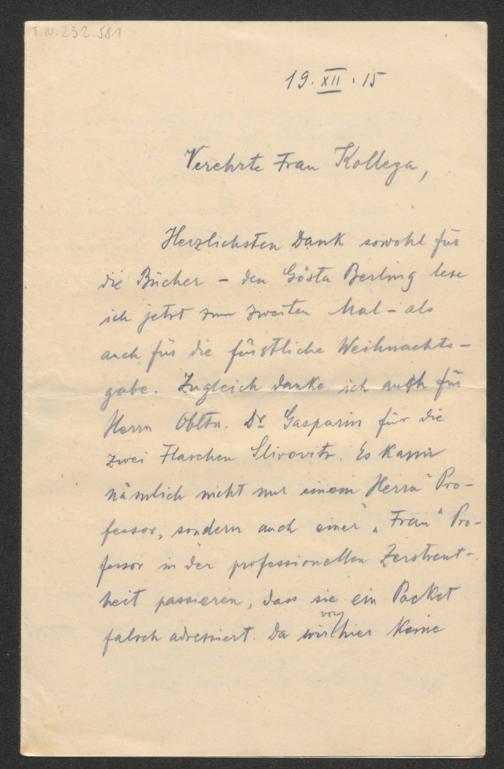 I.N. 232.581
19. XII. 15
Verehrte Frau Kollega,
Herzlichsten Dank sowohl für
die Bücher – den Gösta Berling lese
ich jetzt zum zweiten Mal – als
auch für die fürstliche Weihnachts-
gabe. Zugleich danke ich auch für
Herrn Obltn. Dr Gasparin für die
zwei Flaschen Slivovitz. Es kann
nämlich nicht nur einem „Herrn“ Pro-
fessor, sondern auch einer „Frau“ Pro-
fessor in der professionellen Zerstreut-
heit passieren, dass sie ein Packet
falsch adressiert. Da wir von hier keine